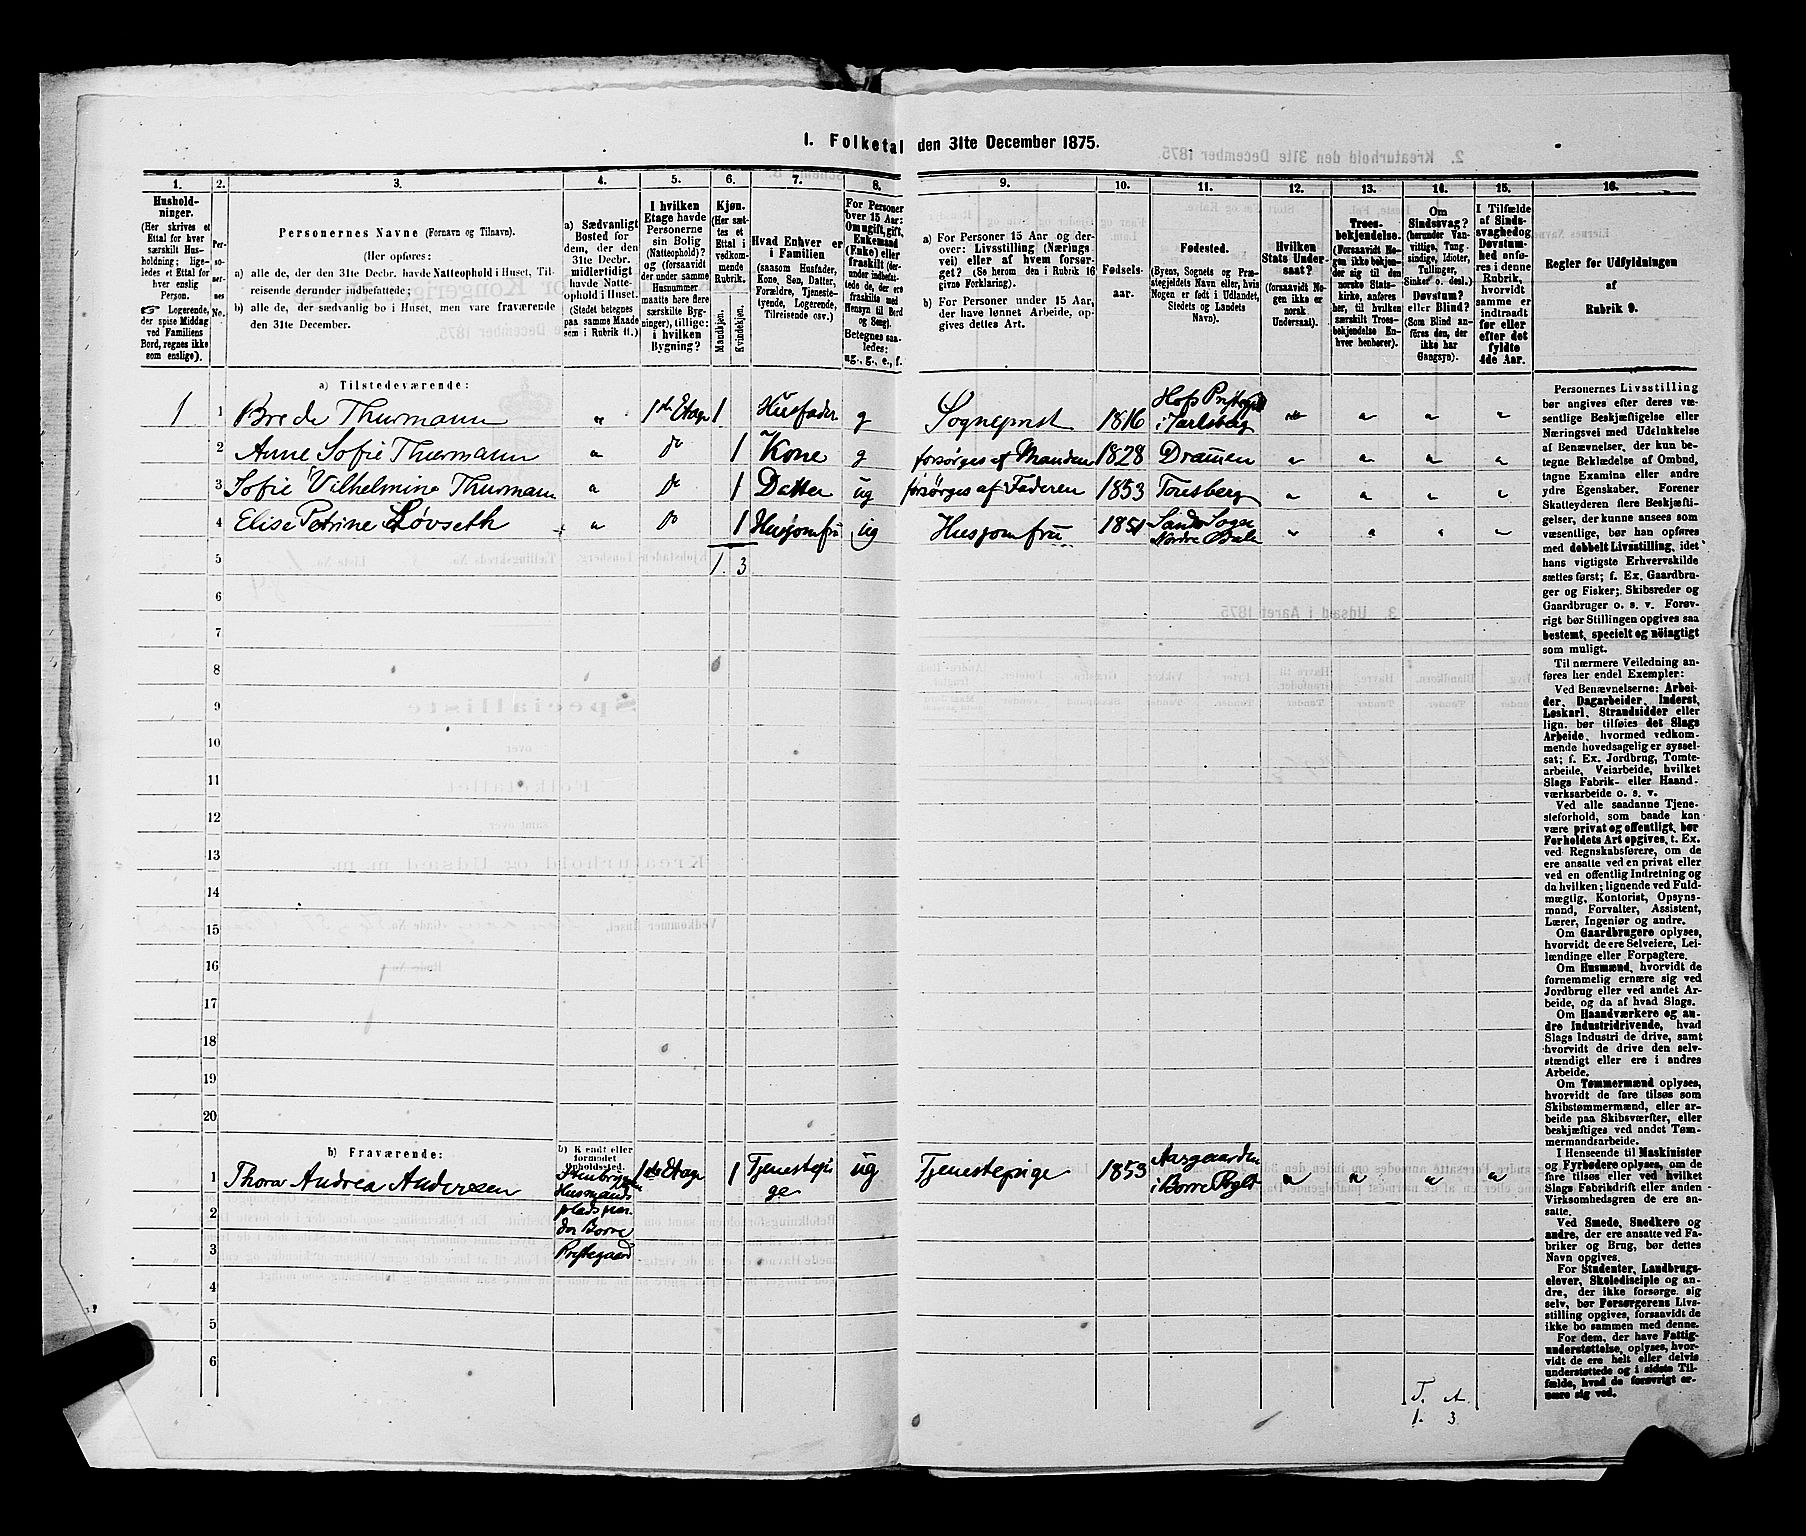 I. Folketal den 31te December 1875.
1. 2. 3. 4. 5. 6. 7. 8. 9. 10. 11. 12. 13. 14. 15. 16.
Hushold-
ninger.
(Her skrives et
Ettal for hver
særskilt Hus-
holdning; lige-
ledes et Ettal for
hver enslig
Person.
☞ Logerende,
der spise Middag
ved Familiens
Bord, regnes ikke
som enslige).
Per-
so-
ner-
nes
No.
Personernes Navne (Fornavn og Tilnavn).
(Her opføres:
a) alle de, der den 31te Decbr. havde Natteophold i Huset, Til-
reisende derunder indbefattede;
b) alle de, der sædvanlig bo i Huset, men vare fraværende
den 31te December.
a) Sædvanligt
Bosted for
dem, der den
31te Decbr.
midlertidigt
havde Natte-
ophold i Huset.
(Stedet betegnes
paa samme Maade
som i Rubrik 11.)
I hvilken
Etage havde
Personerne
sin Bolig
(Natteophold)?
og (forsaavidt
der under samme
Husnummer
maatte høre flere
særskilte Byg-
ninger), tillige:
i hvilken
Bygning?
Kjøn.
(Her sæt-
tes et
Ettal i
vedkom-
mende
Rubrik.
Mandkjøn.
Kvindekjøn.
Hvad Enhver er
i Familien
(saasom Husfader,
Kone, Søn, Datter,
Forældre, Tjeneste-
tyende, Logerende,
Tilreisende osv.)
For Personer
over 15 Aar:
Om ugift, gift,
Enkemand
(Enke) eller
fraskilt (der-
under indbefat-
tede de, der ere
fraskilte med
Hensyn til Bord
og Seng).
Betegnes saa-
ledes:
ug., g., e., f.
a) For Personer 15 Aar og der-
over: Livsstilling (Nærings
vei) eller af hvem forsør-
get? (Se herom den i Rubrik 16
givne Forklaring).
b) For Personer under 15 Aar,
der have lønnet Arbeide, op-
gives dettes Art.
Fødsels-
aar.
Fødested.
(Byens, Sognets og Præ-
stegjeldets Navn eller, hvis
Nogen er født i Udlandet,
Stedets og Landets
Navn).
Hvilken
Stats Under-
saat?
(forsaavidt No-
gen ikke er
norsk
Undersaat).
Troes-
bekjendelse.
(Forsaavidt No-
gen ikke bekjen-
der sig til den
norske Stats-
kirke, anføres
her, til hvilken
særskilt Troes-
bekjendelse En-
hver henhører).
Om
Sindssvag?
(herunder Van-
vittige, Tung-
sindige, Idioter,
Tullinger,
Sinker o. desl.)
Døvstum?
eller Blind?
(Som Blind an-
føres den, der
ikke har
Gangsyn).
I Tilfælde
af Sinds-
svaghed og
Døvstum-
hed anfø-
res i denne
Rubrik,
hvorvidt
samme er
indtraadt
før eller
efter det
fyldte
4de Aar.
Regler for Udfyldningen
af
Rubrik 9.
a) Tilstedeværende:
1 1 Brede Thurmann " 1ste Etage 1 Husfader g Sogneprest 1816 Hofs Prstgjd i Jarlsberg " " " "
2 Anne Sofie Thurmann " do 1 Kone g forsørges af Manden 1828 Dramen " " " "
3 Sofie Vilhelmine Thurmann " do 1 Datter ug forsørges af Faderen 1853 Tønsberg " " " "
4 Elise Petrine Løvseth " do 1 Husjomfru ug Husjomfru 1851 Sands Sogn Nordre " " " "
5 1. 3
6
7
8
9
10
11
12
13
14
15
16
17
18
19
20
b) Fraværende:
b) Kendt eller
formodet
Opholdssted.
1 Thora Andrea Andersen Husmands pladsen Borre Prstegaard 1ste Etage 1 Tjenestepige ug Tjenestepige 1853 Aasgaarden i Borre Prgld " " " "
2
3
4
5
6
T. A.
1. 3
Personernes Livsstilling
bør angives efter deres væ-
sentlige Beskjæftigelse eller
Næringsvei med Udelukkelse
af Benævnelser, der kun be-
tegne Beklædelse af Ombud,
tagne Examina eller andre
ydre Egenskaber. Forener
Skatteyderen flere Beskjæfti-
gelser, der kunne ansees som
væsentlige, bør han opføres
med dobbelt Livsstilling, idet
hans vigtigste Erhvervskilde
sættes først; f. Ex. Gaardbru-
ger og Fisker; Skibsreder og
Gaardbruger o. s. v. Forøv-
rigt bør Stillingen opgives saa
bestemt, specielt og nøiagtigt
som muligt.
Til nærmere Veiledning an-
føres her endel Exempler:
Ved Benævnelserne: Arbei-
der, Dagarbeider, Inderst,
Løskarl, Strandsidder eller
lign. bør tilføies det Slags
Arbeide, hvormed vedkom-
mende hovedsagelig er syssel-
sat; f. Ex. Jordbrug, Tomte-
arbeide, Veiarbeide, hvilket
Slags Fabrik- eller Haand-
værksarbeide o. s. v.
Ved alle saadanne Tjene-
steforhold, som baade kan
være privat og offentligt, bør
Forholdets Art opgives, t. Ex.
ved Regnskabsførere, om de
ere ansatte ved en privat eller
ved en offentlig Indretning og
da hvilken; lignende ved Fuld-
mægtig, Kontorist, Opsyns-
mand, Forvalter, Assistent,
Lærer, Ingeniør og andre.
Om Gaardbrugere oplyses,
hvorvidt de ere Selveiere, Lei-
lændinge eller Forpagtere.
Om Husmænd, hvorvidt de
fornemmelig ernære sig ved
Jordbrug eller ved andet Ar-
beide, og da af hvad Slags.
Om Haandværkere og an-
dre Industridrivende, hvad
Slags Industri de drive, samt
hvorvidt de drive den selv-
stændigt eller ere i andres
Arbeide.
Om Tømmermænd oplyses,
hvorvidt de fare tilsøs som
Skibstømmermænd, eller ar-
beide paa Skibsværfter, eller
beskjæftiges ved andet Tøm-
mermandsarbeide.
I Henseende til Maskinister
og Fyrbødere oplyses, om de
fare tilsøs eller ved hvilket
Slags Fabrikdrift eller anden
Virksomhedsgren de ere an-
satte.
Ved Smede, Snedkere og
andre, der ere ansatte ved Fa-
briker og Brug, bør dettes
Navn opgives.
For Studenter, Landbrugs-
elever, Skoledisciple og an-
dre, der ikke forsørge sig
selv, bør Forsørgerens Livs-
stilling opgives, forsaavidt de
ikke bo sammen med denne.
For dem, der have Fattig-
understøttelse, oplyses, hvor-
vidt de ere helt eller delvis
understøttede og i sidste Til-
fælde, hvad de forøvrigt er-
nære sig ved.